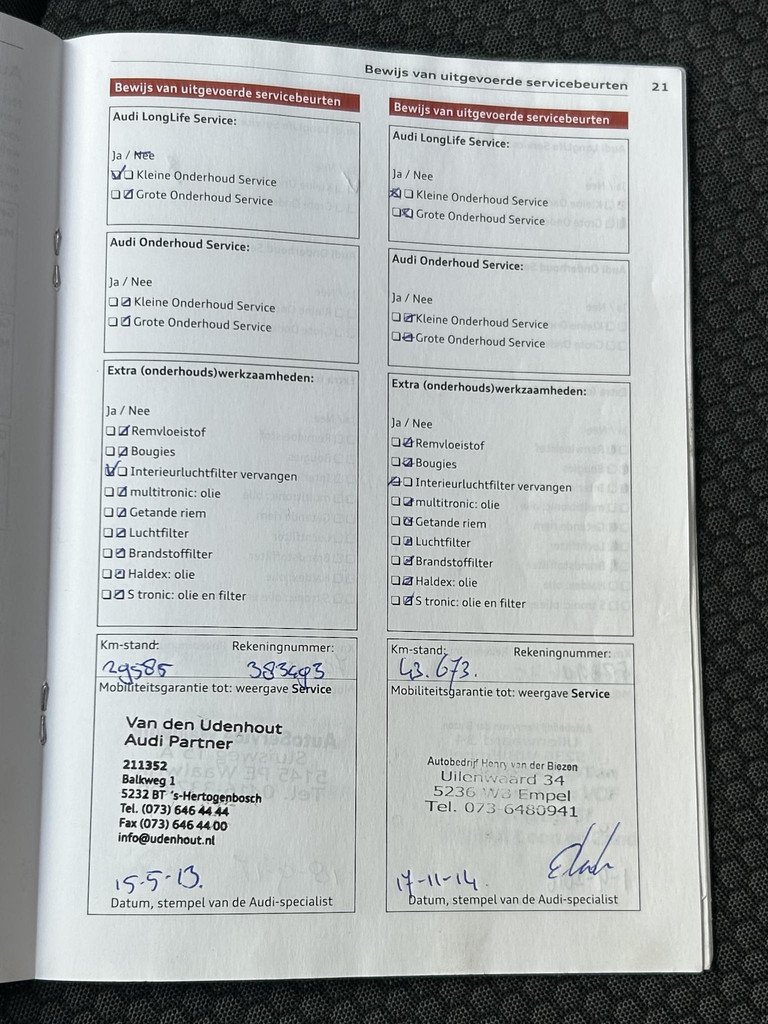 Bewijs van uitgevoerde servicebeurten 21
Bewijs van uitgevoerde servicebeurten
Audi LongLife Service:
Ja / Nee
Kleine Onderhoud Service
Grote Onderhoud Service
Audi Onderhoud Service:
Ja / Nee
Kleine Onderhoud Service
Grote Onderhoud Service
Extra (onderhouds)werkzaamheden:
Ja / Nee
Remvloeistof
Bougies
Interieurluchtfilter vervangen
multitronic: olie
Getande riem
Luchtfilter
Brandstoffilter
Haldex: olie
S tronic: olie en filter
Km-stand: Rekeningnummer:
29585 383493
Mobiliteitsgarantie tot: weergave Service
Van den Udenhout
Audi Partner
211352
Balkweg 1
5232 BT 's-Hertogenbosch
Tel. (073) 646 44 44
Fax (073) 646 44 00
info@udenhout.nl
15-5-13.
Datum, stempel van de Audi-specialist
Bewijs van uitgevoerde servicebeurten
Audi LongLife Service:
Ja / Nee
Kleine Onderhoud Service
Grote Onderhoud Service
Audi Onderhoud Service:
Ja / Nee
Kleine Onderhoud Service
Grote Onderhoud Service
Extra (onderhouds)werkzaamheden:
Ja / Nee
Remvloeistof
Bougies
Interieurluchtfilter vervangen
multitronic: olie
Getande riem
Luchtfilter
Brandstoffilter
Haldex: olie
S tronic: olie en filter
Km-stand: Rekeningnummer:
43.673.
Mobiliteitsgarantie tot: weergave Service
Autobedrijf Henry van der Biezen
Uilenwaard 34
5236 WB Empel
Tel. 073-6480941
17-11-14.
Datum, stempel van de Audi-specialist